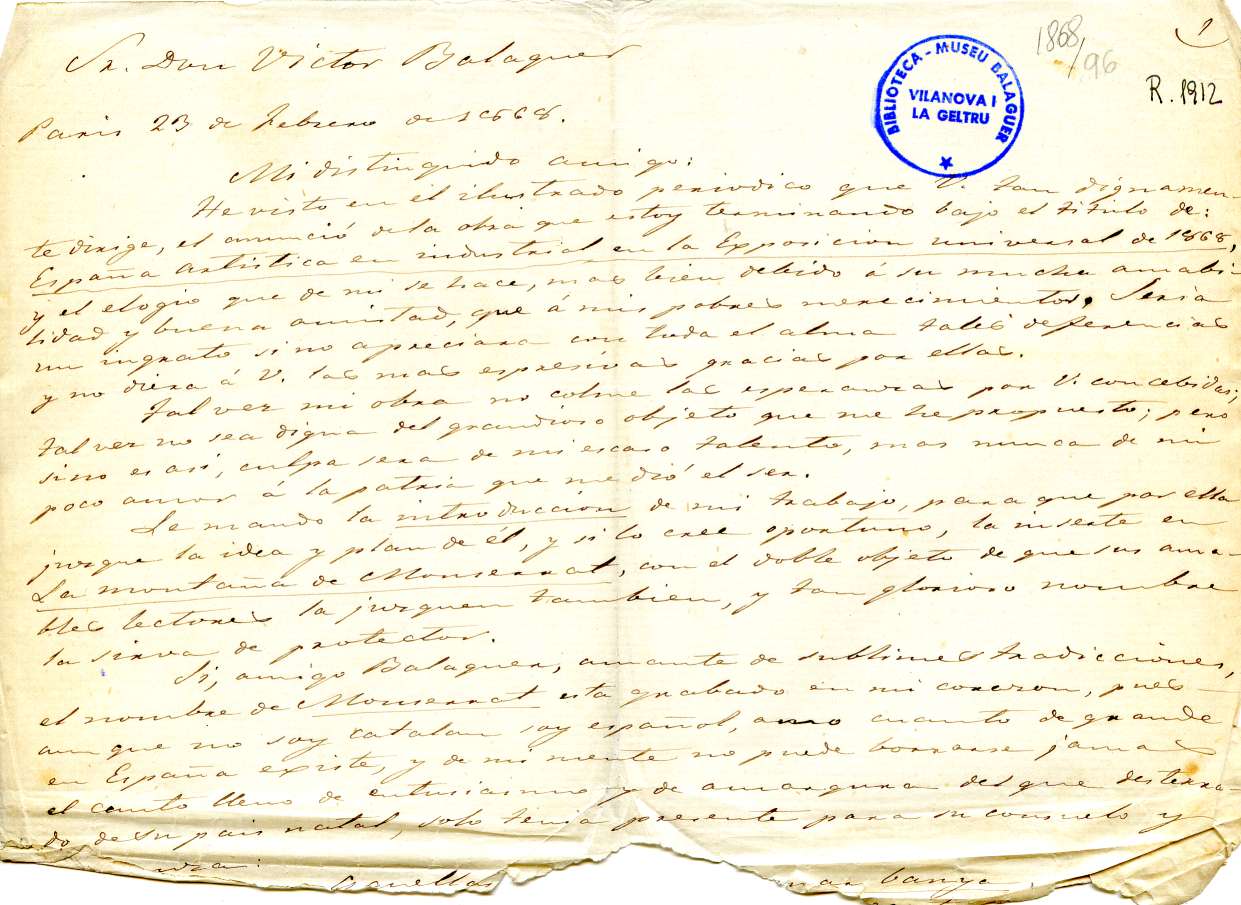 1
1868/96
R. 1912
BIBLIOTECA - MUSEU BALAGUER
VILANOVA I
LA GELTRU
Sr. Don Victor Balaguer
Paris 23 de Febrero de 1868.
Mi distinguido amigo:
He visto en el ilustrado periodico que V. tan dignamen-
te dirige, el anunció de la obra que estoy terminando bajo el titulo de:
España artistica en industrial en la Exposicion universal de 1868,
y el elogio que de mi se hace, mas bien debido á su mucha amabi-
lidad y buena amistad, que á mis pobres merecimientos. Seria
un ingrato si no apreciara con toda el alma tales deferencias
y no diera á V. las mas espresivas gracias por ellas.
Tal vez mi obra no colme las esperanzas por V. concebidas;
tal vez no sea digna del grandioso objeto que me he propuesto; pero
si no es asi, culpa sera de mi escaso talento, mas nunca de mi
poco amor á la patria que me dió el ser.
Le mando la introduccion de mi trabajo, para que por ella
jusgue la idea y plan de él, y si lo cree oportuno, la inserte en
La montaña de Monserrat, con el doble objeto de que sus ama-
bles lectores la jusguen tambien, y tan glorioso nombre
la sirva de protector.
Si, amigo Balaguer, amante de sublimes tradicciones,
el nombre de Monserrat esta grabado en mi corazon, pues
aun que no soy catalan soy español, amo cuanto de grande
en España existe, y de mi mente no puede borrarse jamas
el canto lleno de entusiasmo y de amargura del que desterra-
do de su pais natal, solo tenia presente para su consuelo y
Aquellas